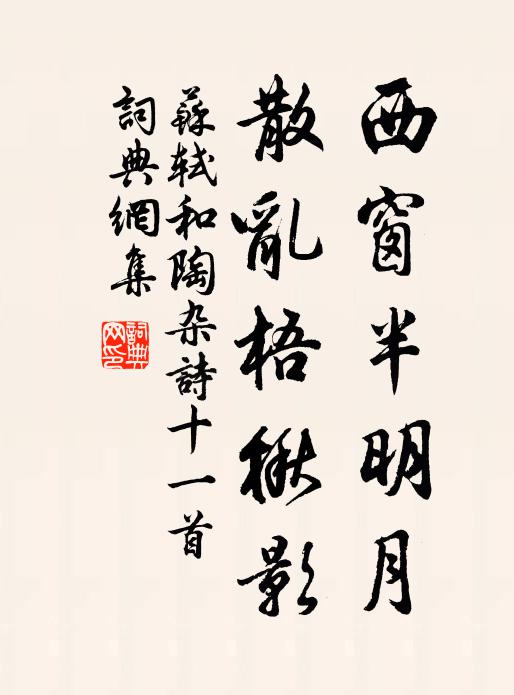 西窗半明月
散亂梧楸影
蘇軾和陶杂詩十一首
詞典網集
詞典网印